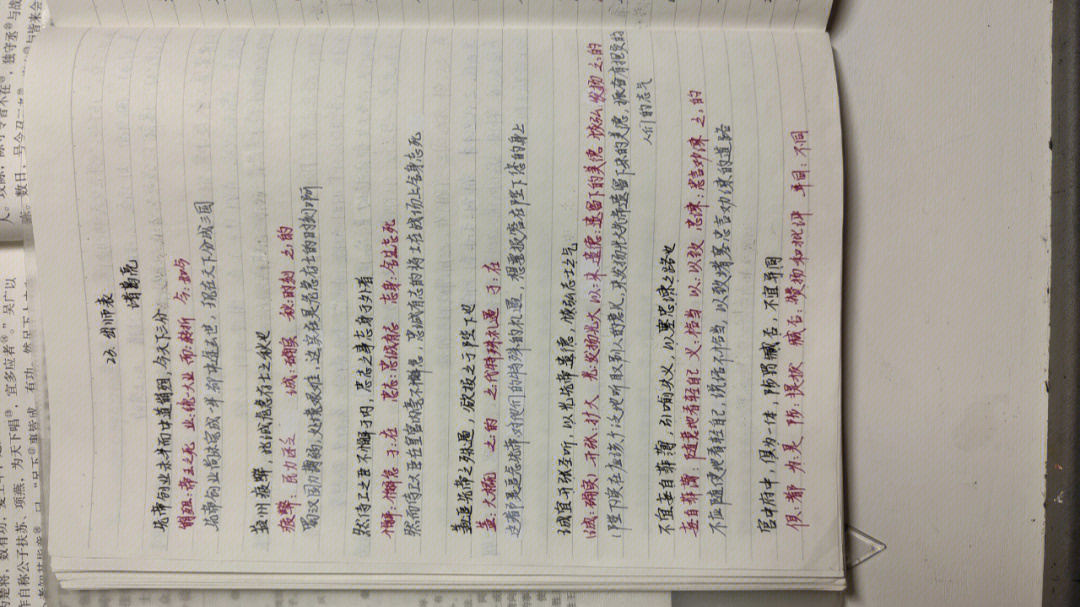 23. 出师表
诸葛亮
先帝创业未半而中道崩殂，今天下三分
崩殂：帝王之死 业：统一大业 而：转折 今：如今
先帝创业尚未完成一半却中途去世，现在天下分成三国
益州疲弊，此诚危急存亡之秋也
疲弊：民力匮乏 诚：确实 秋：时刻 之：的
蜀汉国力薄弱，处境艰难，这实在是危急存亡的时刻啊
然侍卫之臣不懈于内，忠志之士忘身于外者
懈：懈怠 于：在 忠志：忠诚有志 忘身：舍生忘死
然而侍卫大臣在皇宫内毫不懈怠，忠诚有志的将士在战场上舍身忘死
盖追先帝之殊遇，欲报之于陛下也
盖：大概 之：的 之：代特殊礼遇 于：在
这都是追念先帝对他们的特殊的礼遇，想要报答在陛下您的身上
诚宜开张圣听，以光先帝遗德，恢弘志士之气
诚：确实 开张：扩大 光：发扬光大 以：来 遗德：遗留下的美德 恢弘：发扬 之：的
陛下实在应该广泛地听取别人的意见，来发扬光大先帝遗留下来的美德，振奋有抱负的
人们的志气
不宜妄自菲薄，引喻失义，以塞忠谏之路也
妄自菲薄：随意地看轻自己 义：恰当 以：以致 忠谏：忠言劝谏 之：的
不应随便地看轻自己，说话不恰当，以致堵塞忠言劝谏的道路
宫中府中，俱为一体，陟罚臧否，不宜异同
俱：都 为：是 陟：提拔 臧否：赞扬和批评 异同：不同